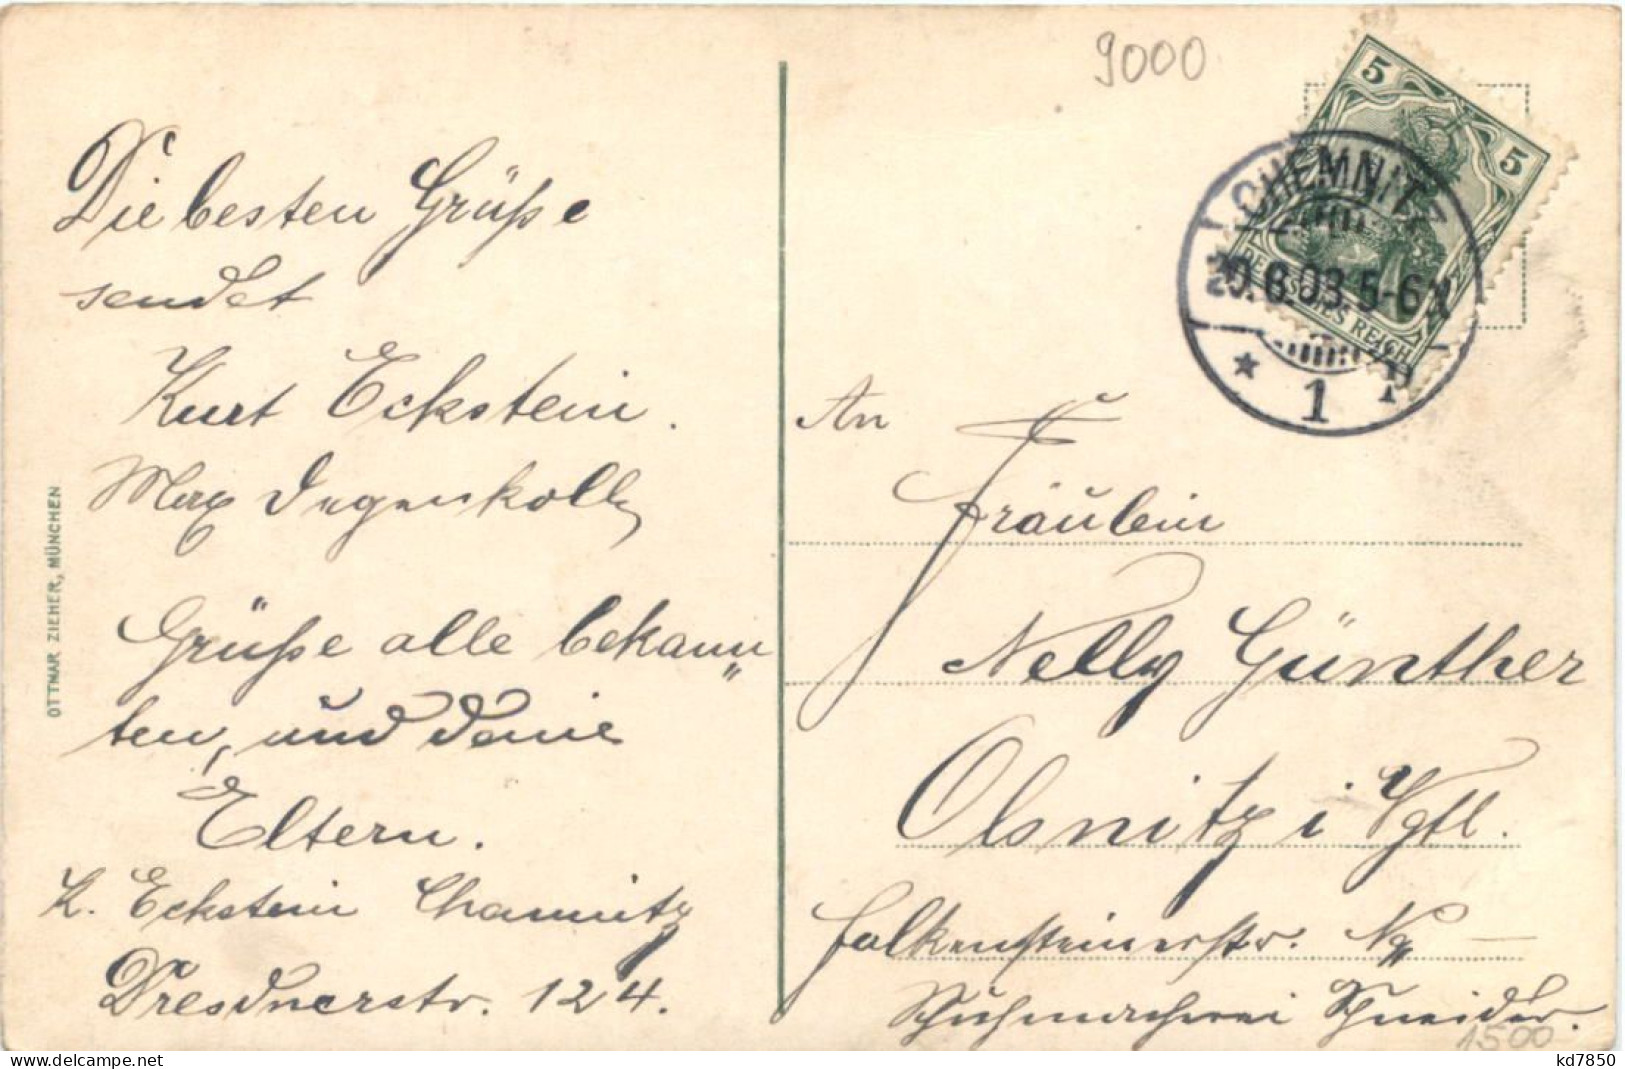 9000
5
5
CHEMNITZ
20.8.03.5-6N
* 1 P
DEUTSCHES REICH
Die besten Grüße
sendet
Kurt Eckstein.
Max Degenkolb
Grüße alle bekann"
ten, und Deine
Eltern.
K. Eckstein Chemnitz
Dresdnerstr. 124.
OTTMAR ZIEHER, MÜNCHEN
An
Fräulein
Nelly Günther
Olsnitz i Vgtl.
Falkensteinerstr. No —
Schuhmacherei Schneider.
1500
kd7850